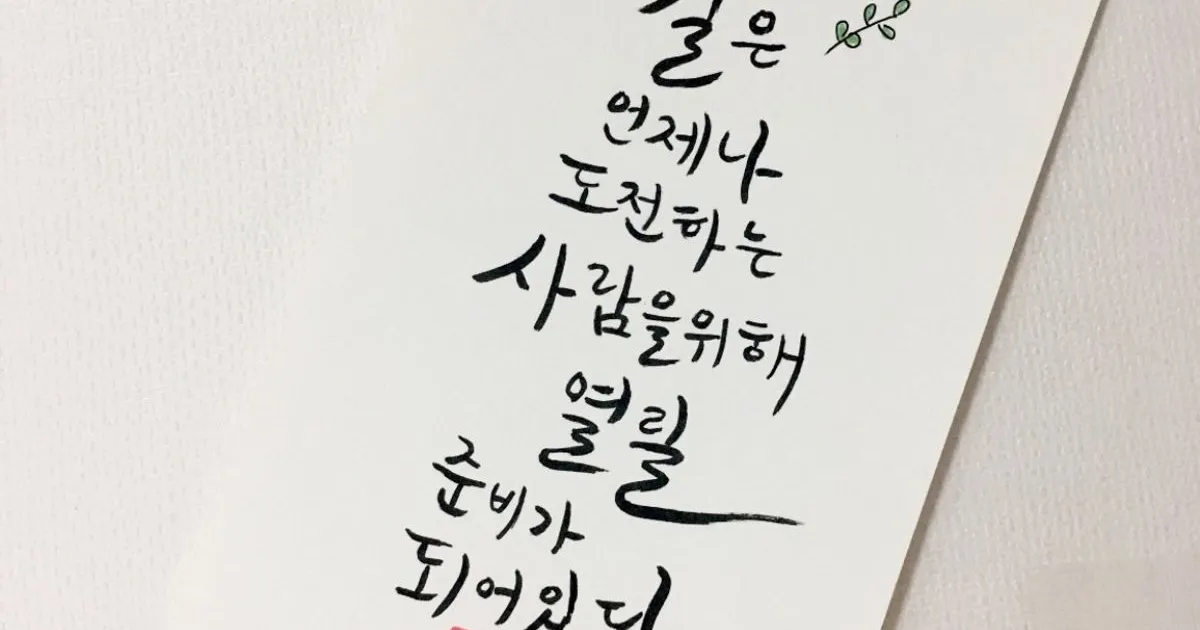 길은
언제나
도전하는
사람을위해
열릴
준비가
되어있다